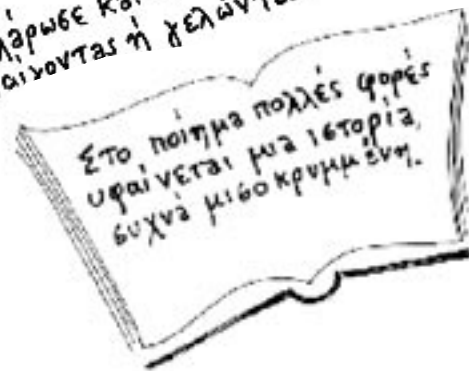 λάρωσε κα
αίνοντας ή γελώντα
Στο ποίημα πολλές φορές
υφαίνεται μια ιστορία,
συχνά μισοκρυμμένη.